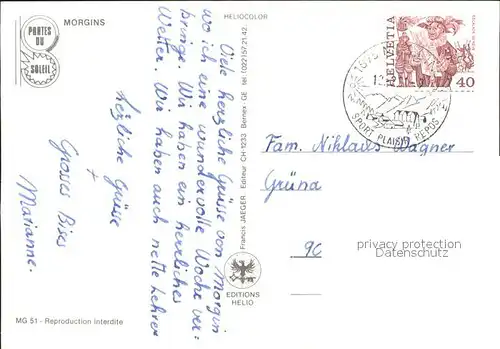 MORGINS
PORTES
DU
SOLEIL
HELIOCOLOR
Viele herzliche Grüsse von Morgin
wo ich eine wundervolle Woche ver-
bringe. Wir haben ein herrliches
Wetter. Wir haben auch nette Lehrer
herzliche Grüsse
+
Grosses Bises
Marianne.
Francis JAEGER - Editeur CH 1233 Bernex-GE tel. (022)57.21.42
EDITIONS
HELIO
HELVETIA
40
SPORT PLAISIR REPOS
Fam. Niklaus Wagner
Grüna
privacy protection
Datenschutz
MG 51 - Reproduction interdite